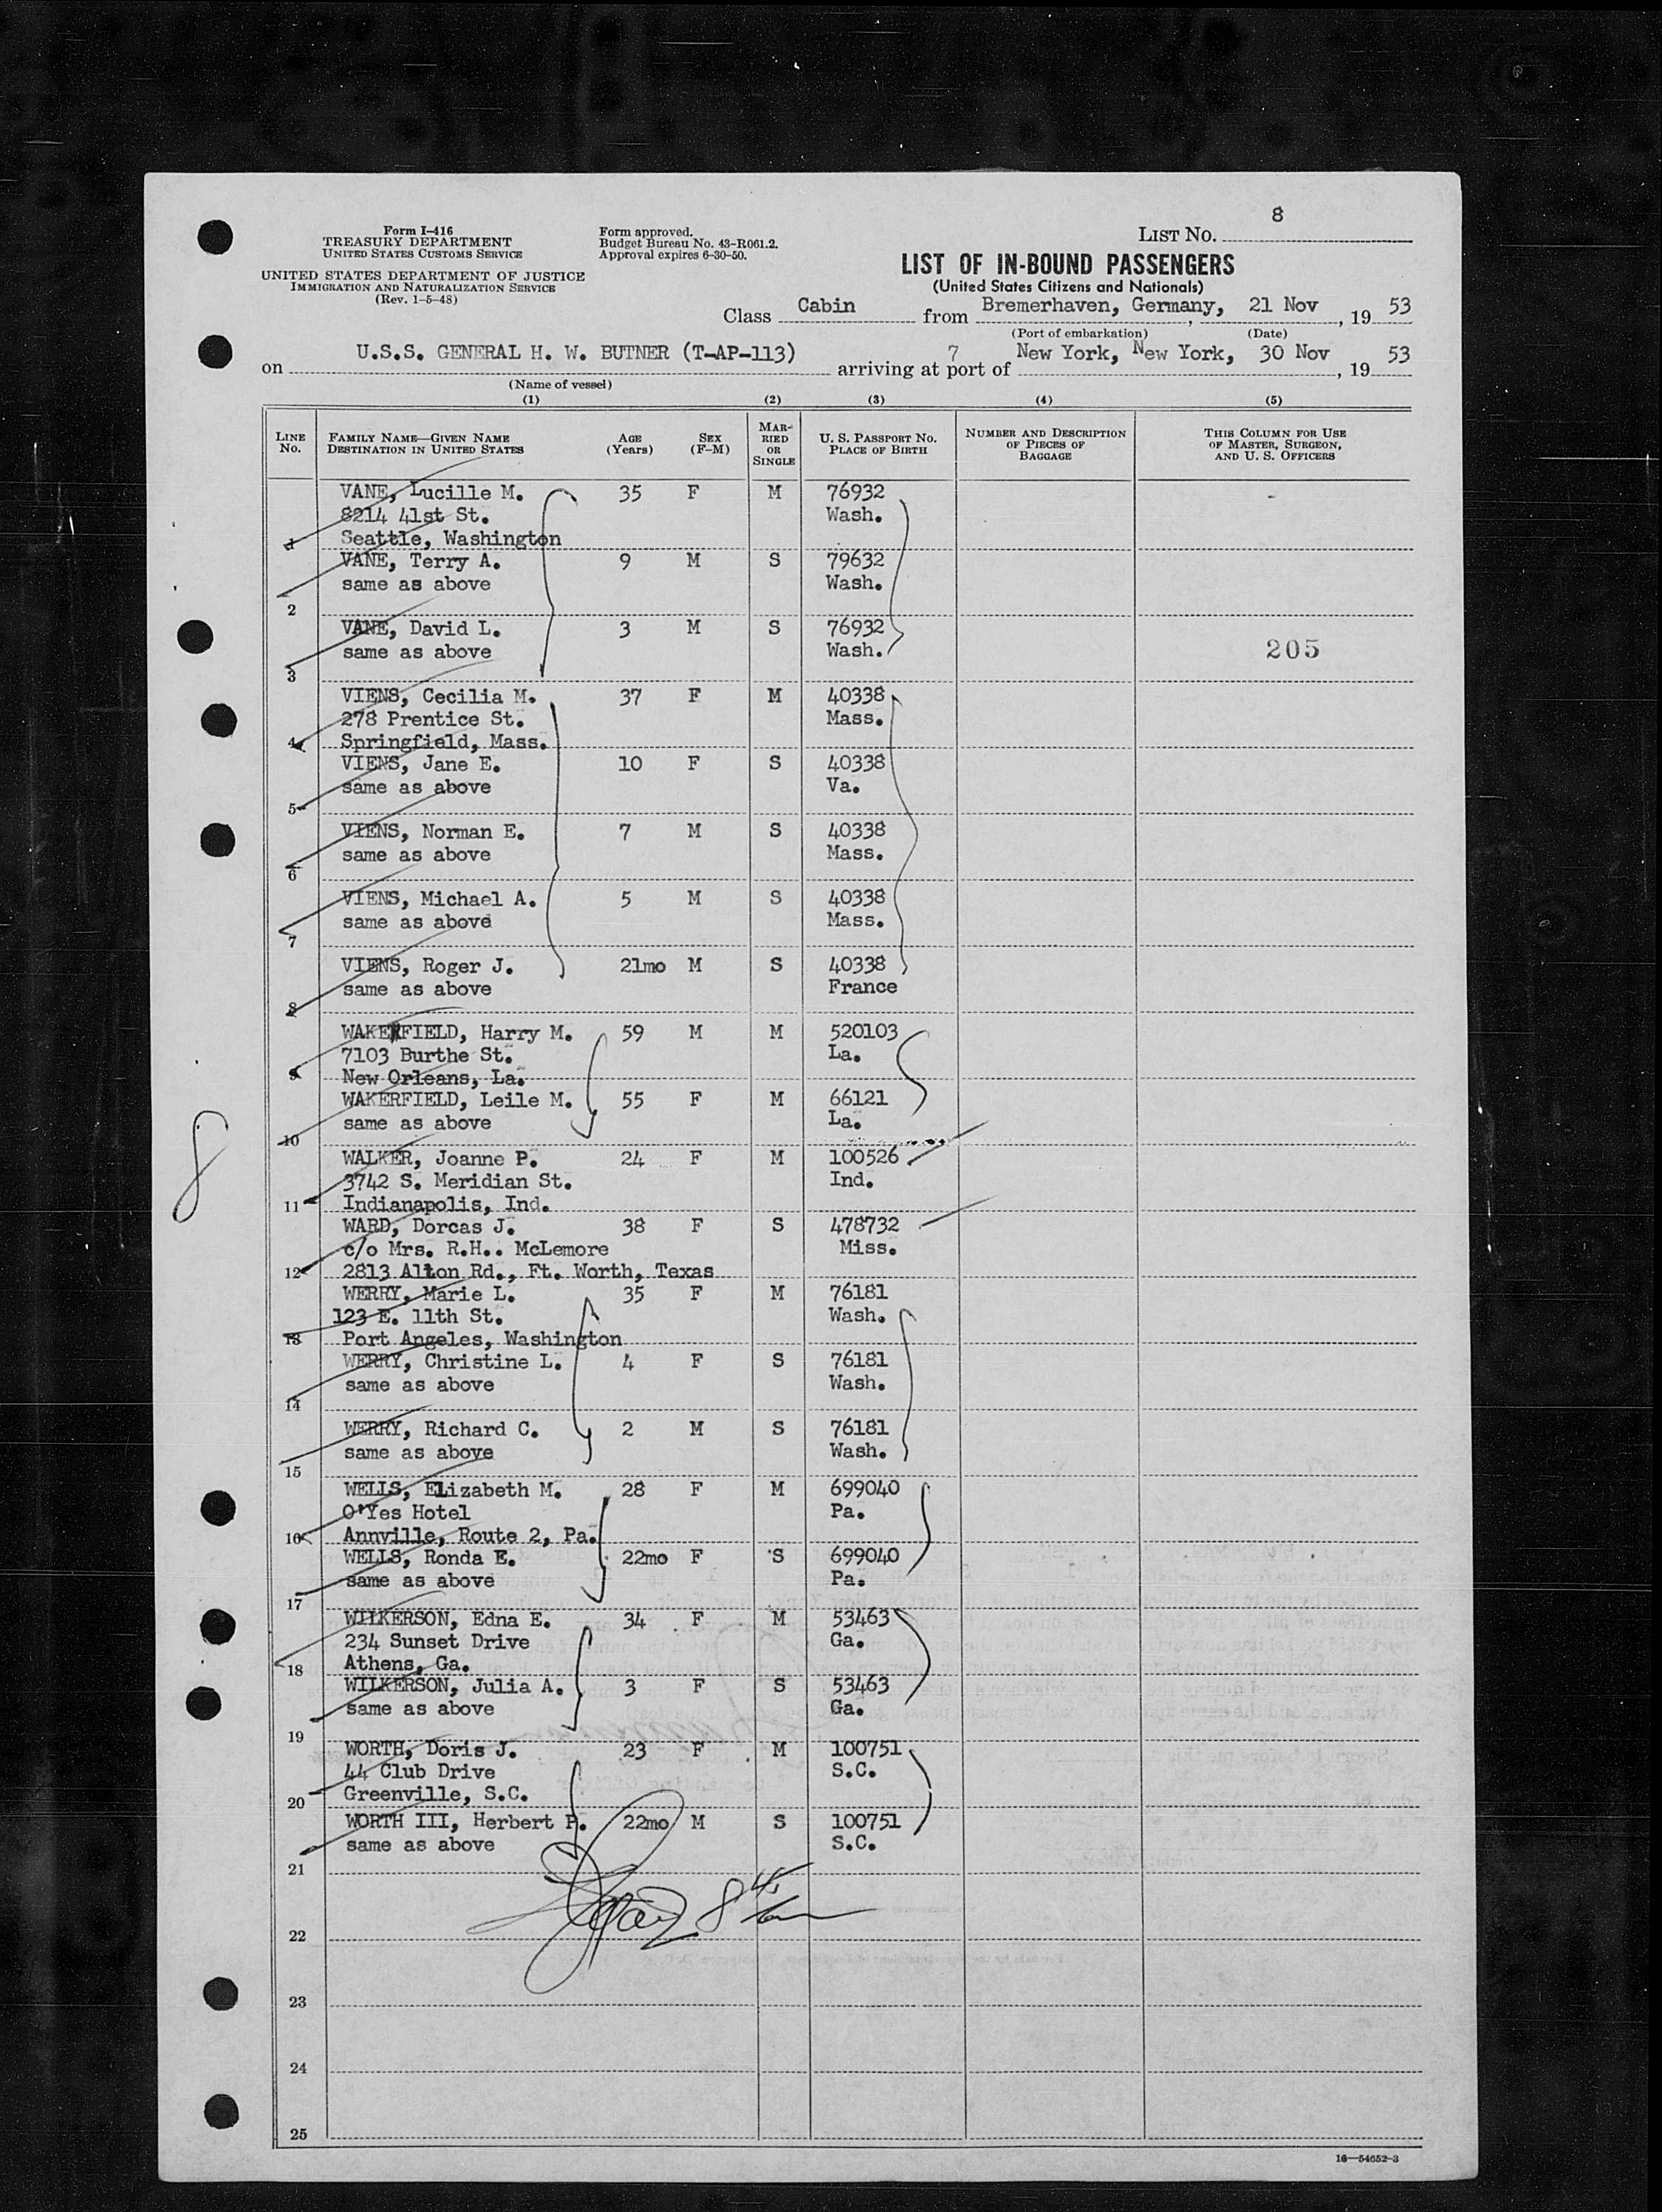 8
Form I-416
TREASURY DEPARTMENT
UNITED STATES CUSTOMS SERVICE
UNITED STATES DEPARTMENT OF JUSTICE
IMMIGRATION AND NATURALIZATION SERVICE
(Rev. 1-5-48)
Form approved.
Budget Bureau No. 43-R061.2.
Approval expires 6-30-50.
LIST NO.
LIST OF IN-BOUND PASSENGERS
(United States Citizens and Nationals)
Class Cabin from Bremerhaven, Germany, 21 Nov, 19 53
(Port of embarkation) (Date)
on U.S.S. GENERAL H. W. BUTNER (T-AP-113) arriving at port of 7 New York, New York, 30 Nov, 19 53
(Name of vessel)
(1) (2) (3) (4) (5)
LINE NO. FAMILY NAME—GIVEN NAME DESTINATION IN UNITED STATES AGE (Years) SEX (F-M) MARRIED OR SINGLE U. S. PASSPORT NO. PLACE OF BIRTH NUMBER AND DESCRIPTION OF PIECES OF BAGGAGE THIS COLUMN FOR USE OF MASTER, SURGEON, AND U. S. OFFICERS
VANE, Lucille M. 35 F M 76932
8214 41st St. Wash.
1 Seattle, Washington
VANE, Terry A. 9 M S 79632
same as above Wash.
2
VANE, David L. 3 M S 76932
same as above Wash. 205
3
VIENS, Cecilia M. 37 F M 40338
278 Prentice St. Mass.
4 Springfield, Mass.
VIENS, Jane E. 10 F S 40338
same as above Va.
5
VIENS, Norman E. 7 M S 40338
same as above Mass.
6
VIENS, Michael A. 5 M S 40338
same as above Mass.
7
VIENS, Roger J. 21mo M S 40338
same as above France
8
WAKERFIELD, Harry M. 59 M M 520103
7103 Burthe St. La.
9 New Orleans, La.
WAKERFIELD, Leile M. 55 F M 66121
same as above La.
10
8
WALKER, Joanne P. 24 F M 100526
3742 S. Meridian St. Ind.
11 Indianapolis, Ind.
WARD, Dorcas J. 38 F S 478732
c/o Mrs. R.H.. McLemore Miss.
12 2813 Alton Rd., Ft. Worth, Texas
WERRY, Marie L. 35 F M 76181
123 E. 11th St. Wash.
13 Port Angeles, Washington
WERRY, Christine L. 4 F S 76181
same as above Wash.
14
WERRY, Richard C. 2 M S 76181
same as above Wash.
15
WELLS, Elizabeth M. 28 F M 699040
O'Yes Hotel Pa.
16 Annville, Route 2, Pa.
WELLS, Ronda E. 22mo F S 699040
same as above Pa.
17
WILKERSON, Edna E. 34 F M 53463
234 Sunset Drive Ga.
18 Athens, Ga.
WILKERSON, Julia A. 3 F S 53463
same as above Ga.
19
WORTH, Doris J. 23 F M 100751
44 Club Drive S.C.
20 Greenville, S.C.
WORTH III, Herbert P. 22mo M S 100751
same as above S.C.
21
22
23
24
25
16—54652-3